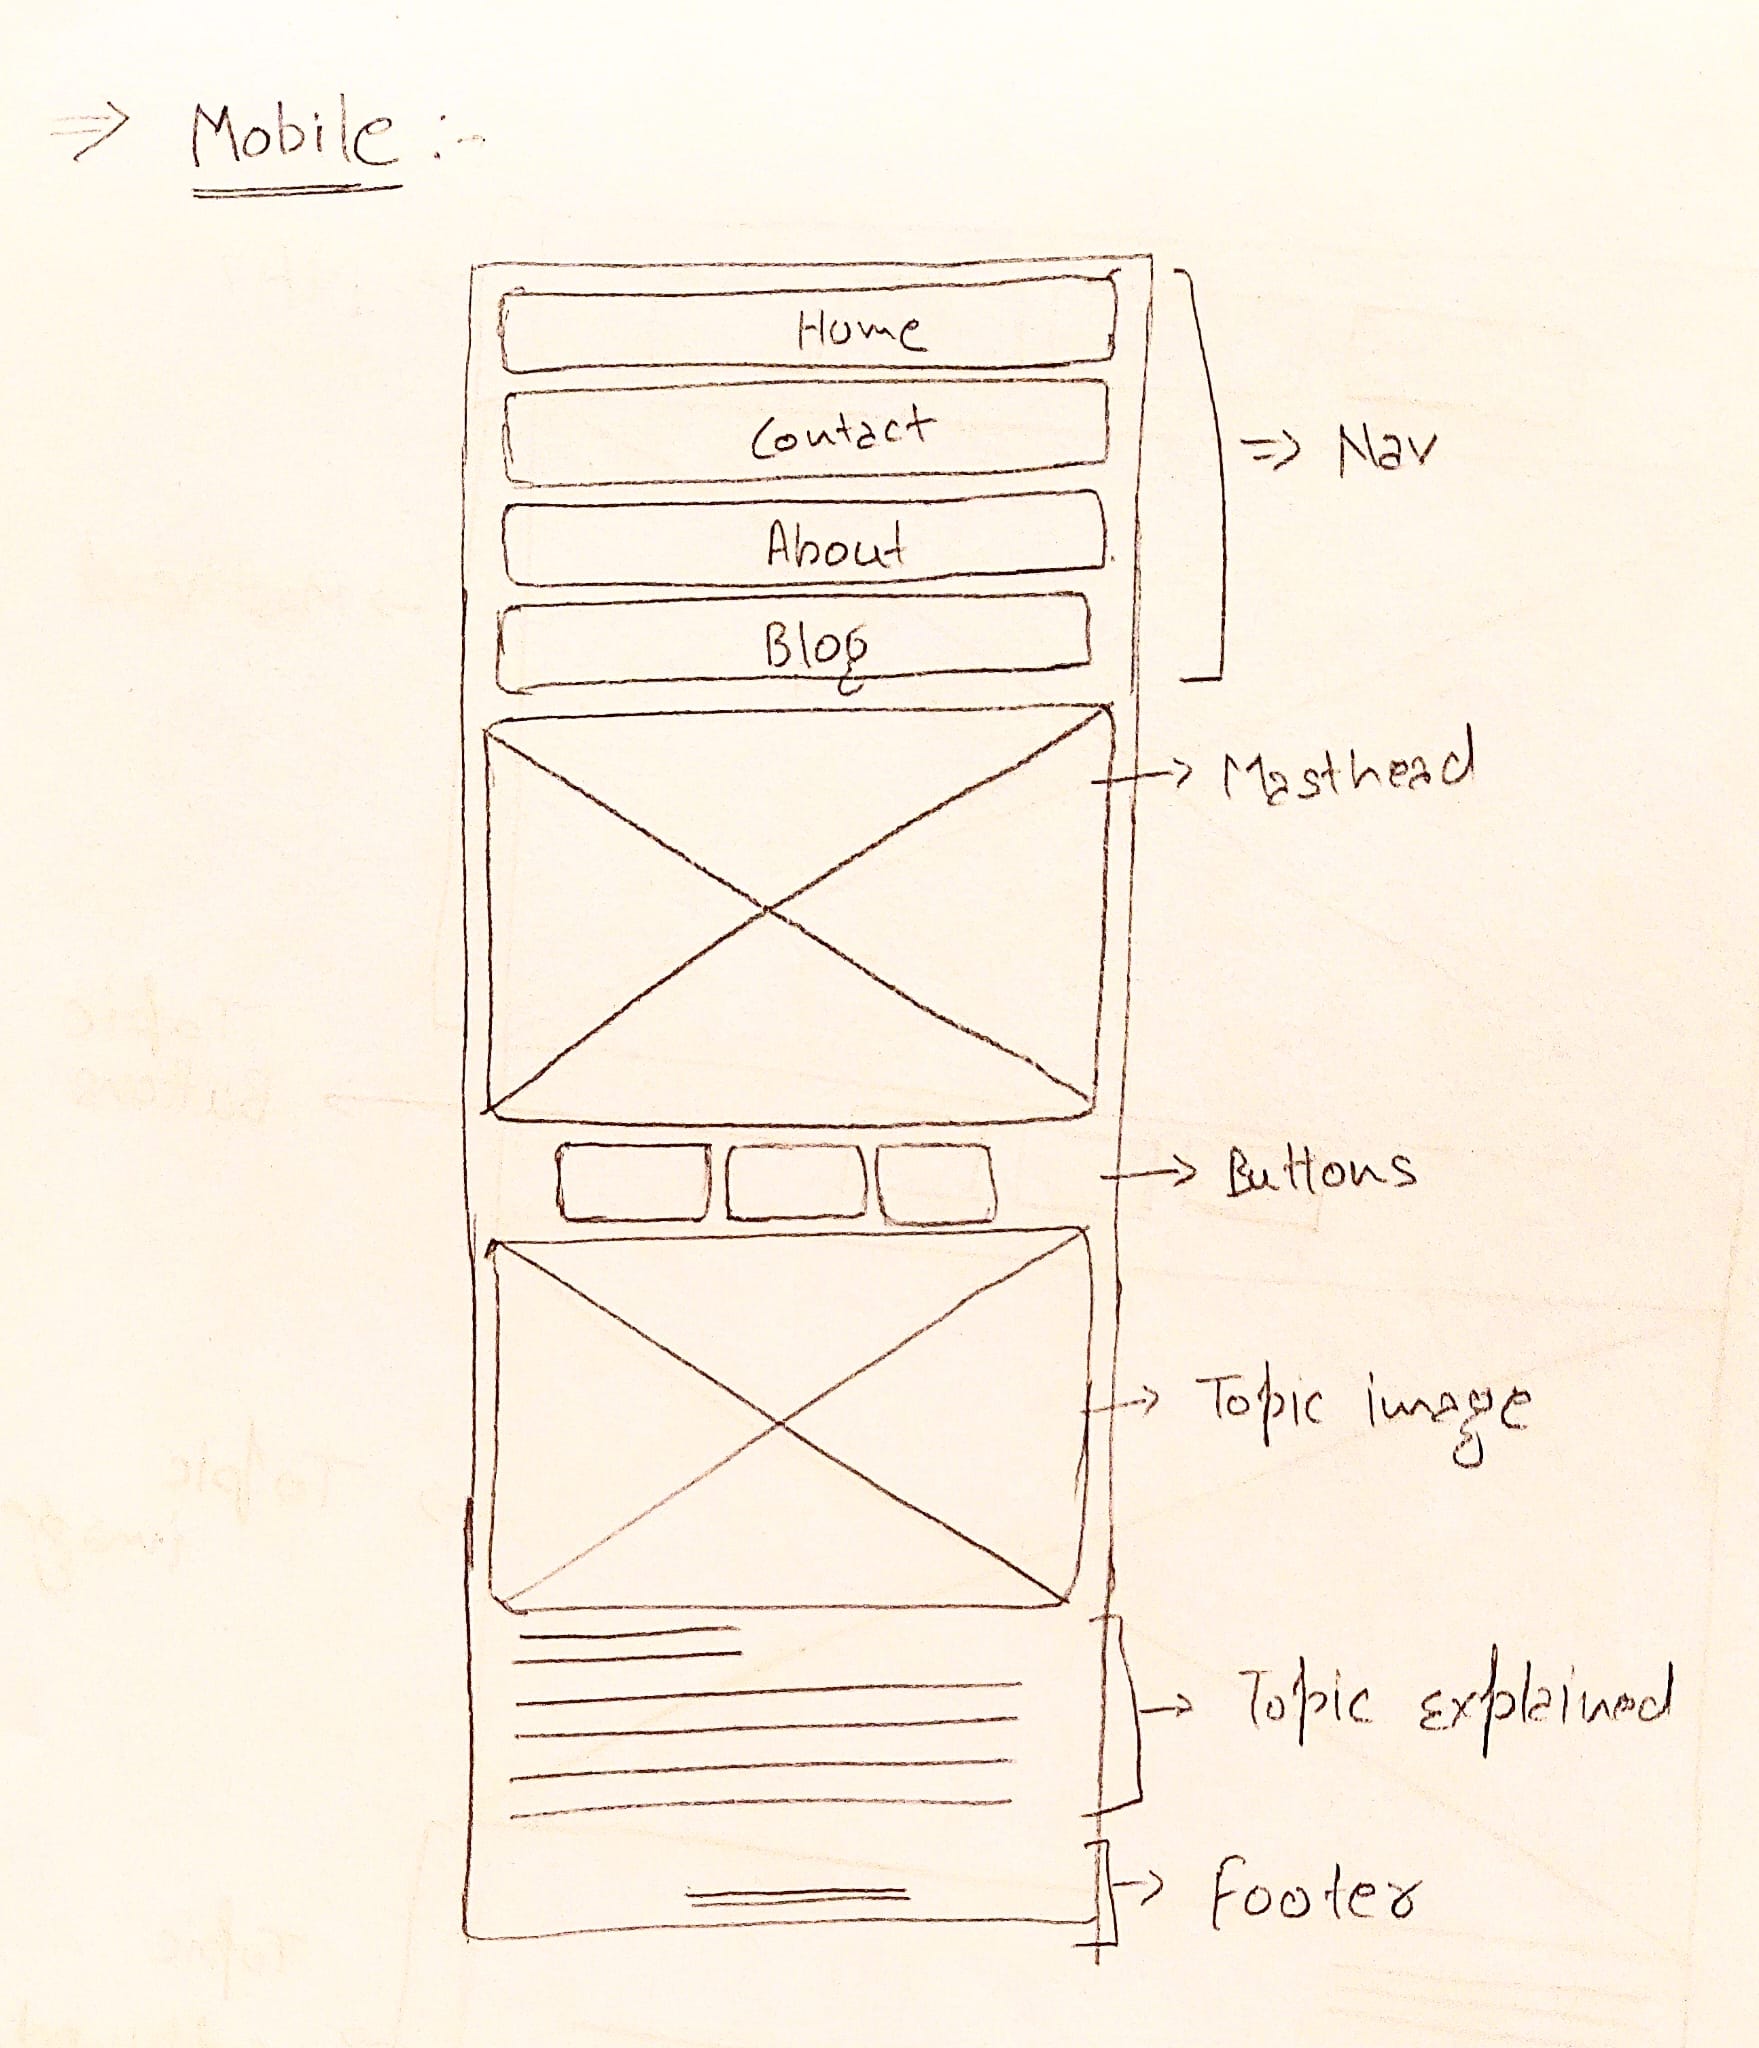 ⇒ Mobile :-
Home
Contact
About
Blog
⇒ Nav
→ Masthead
→ Buttons
→ Topic image
→ Topic explained
→ Footer